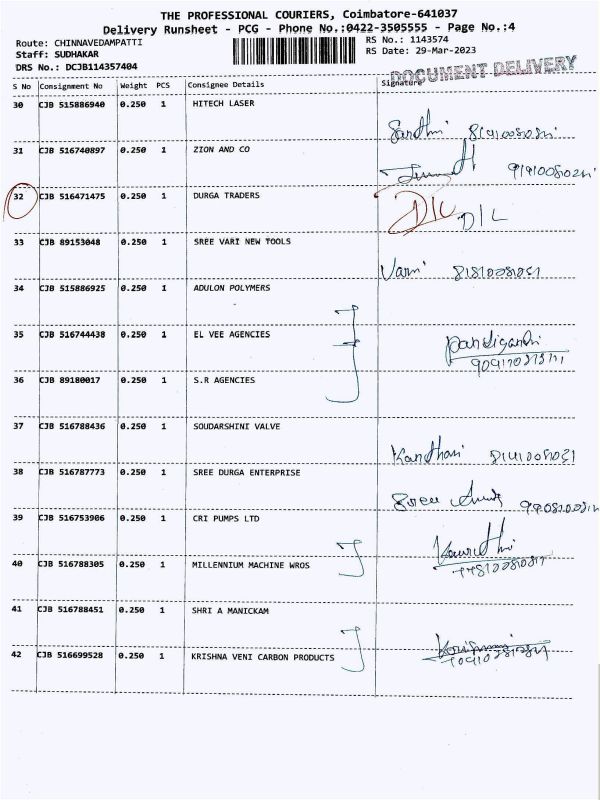 THE PROFESSIONAL COURIERS, Coimbatore-641037
Delivery Runsheet - PCG - Phone No.:0422-3505555 - Page No.:4
Route: CHINNAVEDAMPATTI RS No.: 1143574
Staff: SUDHAKAR RS Date: 29-Mar-2023
DRS No.: DCJB114357404
DOCUMENT DELIVERY
S No Consignment No Weight PCS Consignee Details Signature
30 CJB 515886940 0.250 1 HITECH LASER
31 CJB 516740897 0.250 1 ZION AND CO
32 CJB 516471475 0.250 1 DURGA TRADERS
D/L D/L
33 CJB 89153048 0.250 1 SREE VARI NEW TOOLS
34 CJB 515886925 0.250 1 ADULON POLYMERS
35 CJB 516744438 0.250 1 EL VEE AGENCIES
36 CJB 89180017 0.250 1 S.R AGENCIES
37 CJB 516788436 0.250 1 SOUDARSHINI VALVE
38 CJB 516787773 0.250 1 SREE DURGA ENTERPRISE
39 CJB 516753906 0.250 1 CRI PUMPS LTD
40 CJB 516788305 0.250 1 MILLENNIUM MACHINE WROS
41 CJB 516788451 0.250 1 SHRI A MANICKAM
42 CJB 516699528 0.250 1 KRISHNA VENI CARBON PRODUCTS